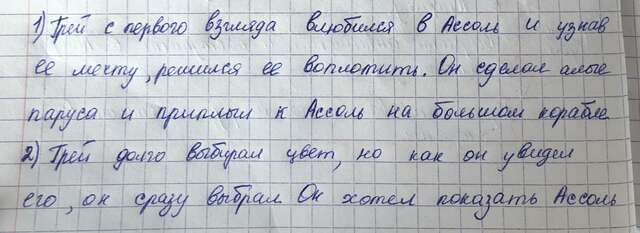 1) Грей с первого взгляда влюбился в Ассоль и узнав
ее мечту, решился ее воплотить. Он сделал алые
паруса и приплыл к Ассоль на большом корабле
2) Грей долго выбирал цвет, но как он увидел
его, он сразу выбрал Он хотел показать Ассоль